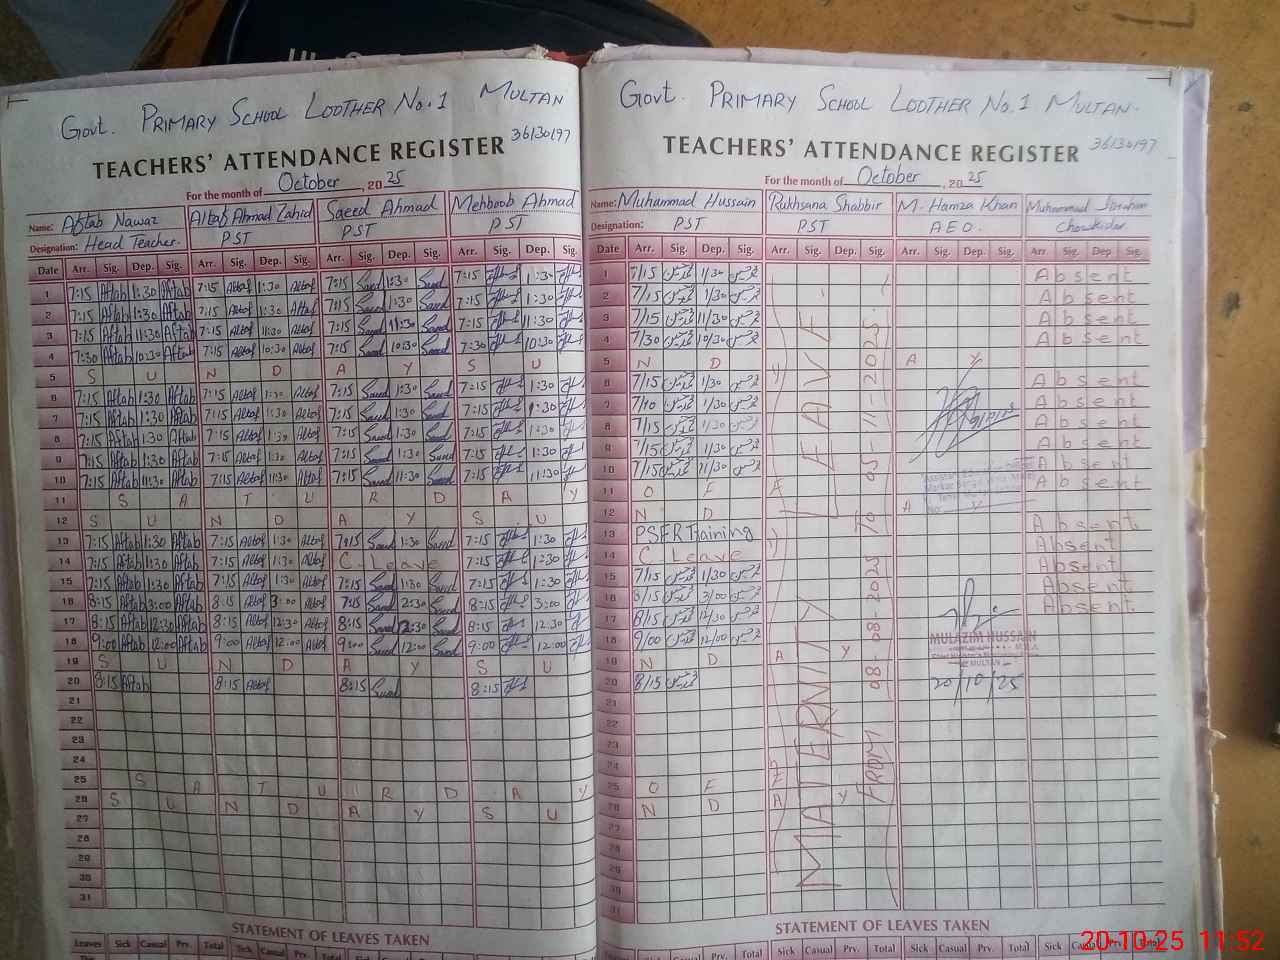 Govt. PRIMARY SCHOOL LOOTHER No.1 MULTAN
36130197
TEACHERS' ATTENDANCE REGISTER
For the month of October, 2025
Name: Aftab Nawaz Altaf Ahmad Zahid Saeed Ahmad Mehboob Ahmad
Designation: Head Teacher. PST PST PST
Date Arr. Sig. Dep. Sig. Arr. Sig. Dep. Sig. Arr. Sig. Dep. Sig. Arr. Sig. Dep. Sig.
1 7:15 Aftab 1:30 Aftab 7:15 Altaf 1:30 Altaf 7:15 Saeed 1:30 Saeed 7:15 1:30
2 7:15 Aftab 1:30 Aftab 7:15 Altaf 1:30 Altaf 7:15 Saeed 1:30 Saeed 7:15 1:30
3 7:15 Aftab 11:30 Aftab 7:15 Altaf 11:30 Altaf 7:15 Saeed 11:30 Saeed 7:15 11:30
4 7:30 Aftab 10:30 Aftab 7:15 Altaf 10:30 Altaf 7:15 Saeed 10:30 Saeed 7:30 10:30
5 S U N D A Y S U
6 7:15 Aftab 1:30 Aftab 7:15 Altaf 1:30 Altaf 7:15 Saeed 1:30 Saeed 7:15 1:30
7 7:15 Aftab 1:30 Aftab 7:15 Altaf 1:30 Altaf 7:15 Saeed 1:30 Saeed 7:15 1:30
8 7:15 Aftab 1:30 Aftab 7:15 Altaf 1:30 Altaf 7:15 Saeed 1:30 Saeed 7:15 1:30
9 7:15 Aftab 1:30 Aftab 7:15 Altaf 1:30 Altaf 7:15 Saeed 1:30 Saeed 7:15 1:30
10 7:15 Aftab 11:30 Aftab 7:15 Altaf 11:30 Altaf 7:15 Saeed 11:30 Saeed 7:15 11:30
11 S A T U R D A Y
12 S U N D A Y S U
13 7:15 Aftab 1:30 Aftab 7:15 Altaf 1:30 Altaf 7:15 Saeed 1:30 Saeed 7:15 1:30
14 7:15 Aftab 1:30 Aftab 7:15 Altaf 1:30 Altaf C-Leave 7:15 1:30
15 7:15 Aftab 1:30 Aftab 7:15 Altaf 1:30 Altaf 7:15 Saeed 1:30 Saeed 7:15 1:30
16 8:15 Aftab 3:00 Aftab 8:15 Altaf 3:00 Altaf 7:15 Saeed 2:30 Saeed 8:15 3:00
17 8:15 Aftab 12:30 Aftab 8:15 Altaf 12:30 Altaf 8:15 Saeed 12:30 Saeed 8:15 12:30
18 9:00 Aftab 12:00 Aftab 9:00 Altaf 12:00 Altaf 9:00 Saeed 12:00 Saeed 9:00 12:00
19 S U N D A Y S U
20 8:15 Aftab 8:15 Altaf 8:15 Saeed 8:15
21
22
23
24
25 S A T U R D A Y
26 S U N D A Y S U
27
28
29
30
31
STATEMENT OF LEAVES TAKEN
Leaves Sick Casual Prv. Total Sick Casual Prv. Total Sick Casual Prv. Total Sick Casual Prv. Total
Govt. PRIMARY SCHOOL LOOTHER No.1 MULTAN.
36130197
TEACHERS' ATTENDANCE REGISTER
For the month of October, 2025
Name: Muhammad Hussain Rukhsana Shabbir M. Hamza Khan Muhammad Ibraham
Designation: PST PST AEO. Chowkidar
Date Arr. Sig. Dep. Sig. Arr. Sig. Dep. Sig. Arr. Sig. Dep. Sig. Arr. Sig. Dep. Sig.
1 7/15 1/30 Absent
2 7/15 1/30 Absent
3 7/15 11/30 Absent
4 7/30 10/30 Absent
5 N D A Y A Y
6 7/15 1/30 Absent
7 7/10 1/30 Absent
8 7/15 1/30 Absent
9 7/15 1/30 Absent
10 7/15 11/30 Absent
11 O F F
12 N D A Y A Y
13 PSER Training Absent
14 C Leave Absent
15 7/15 1/30 Absent
16 8/15 3/00 Absent
17 8/15 12/30 Absent
18 9/00 12/00
19 N D A Y
20 8/15
21
22
23
24
25 O F F
26 N D A Y
27
28
29
30
31
MATERNITY LEAVE
FROM 08-08-2025 TO 05-11-2025
MULAZIM HUSSAIN
MULTAN
20/10/25
STATEMENT OF LEAVES TAKEN
Sick Casual Prv. Total Sick Casual Prv. Total Sick Casual Prv. Total
20-10-25 11:52